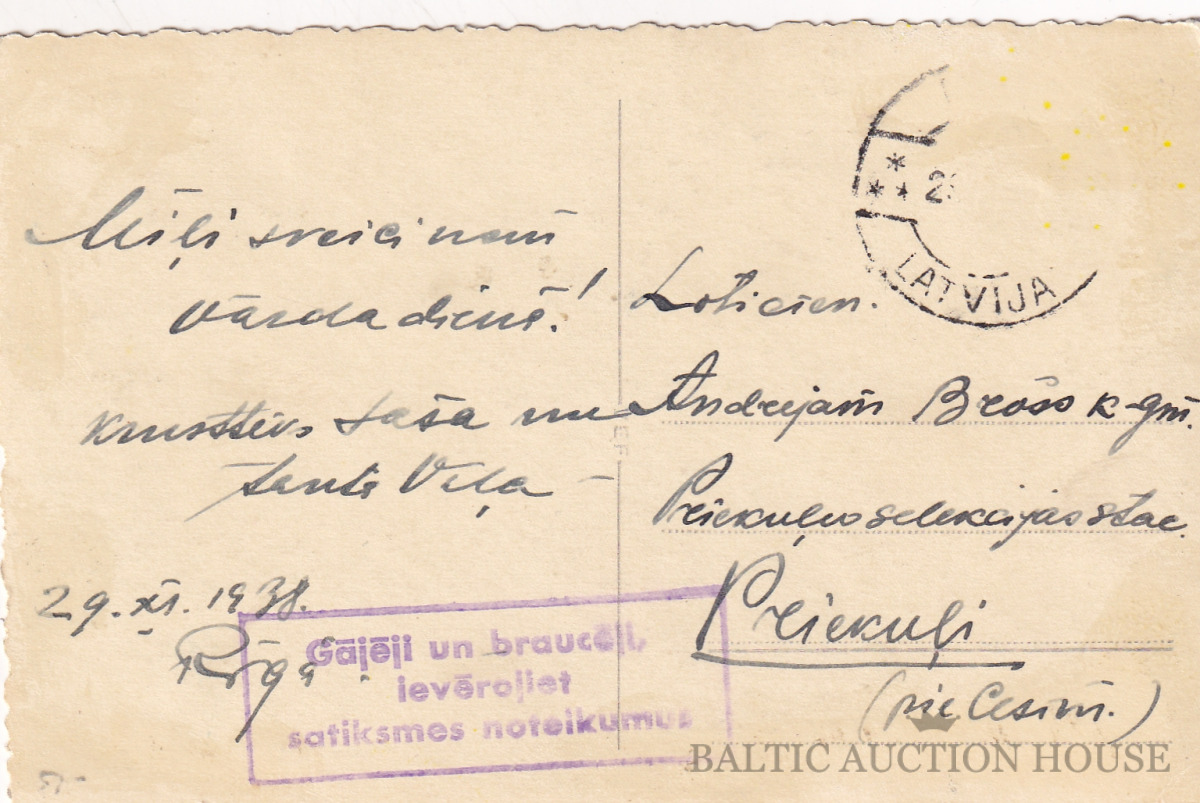 Mīļi sveicinam
Vārda dienā!
Krusttēvs Saša un
tante Viļa –
29. XI. 1938.
Rīgā.
Gājēji un braucēji,
ievērojiet
satiksmes noteikumus
LATVIJA
Loti cien.
Andrejam Brošs k-gm.
Priekuļu selekcijas stac.
Priekuļi
(pie Cēsīm.)
BALTIC AUCTION HOUSE